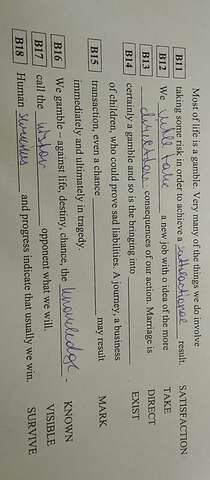 Most of life is a gamble. Very many of the things we do involve
B11 taking some risk in order to achieve a satisfactional result. SATISFACTION
B12 We will take a new job with o idea of the more TAKE
B13 direction consequences of our action. Marriage is DIRECT
B14 certainly a gamble and so is the bringing into EXIST
of children, who could prove sad liabilities. A journey, a business
B15 transaction, even a chance may result MARK
immediately and ultimately in tragedy.
B16 We gamble - against life, destiny, chance, the knowledge - KNOWN
B17 call the opponent what we will. VISIBLE
B18 Human and progress indicate that usually we win. SURVIVE